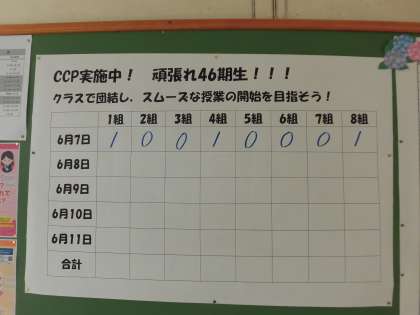 CCP実施中！　頑張れ46期生！！！
クラスで団結し、スムーズな授業の開始を目指そう！
1組 2組 3組 4組 5組 6組 7組 8組
6月7日 1 0 0 1 0 0 0 1
6月8日
6月9日
6月10日
6月11日
合計